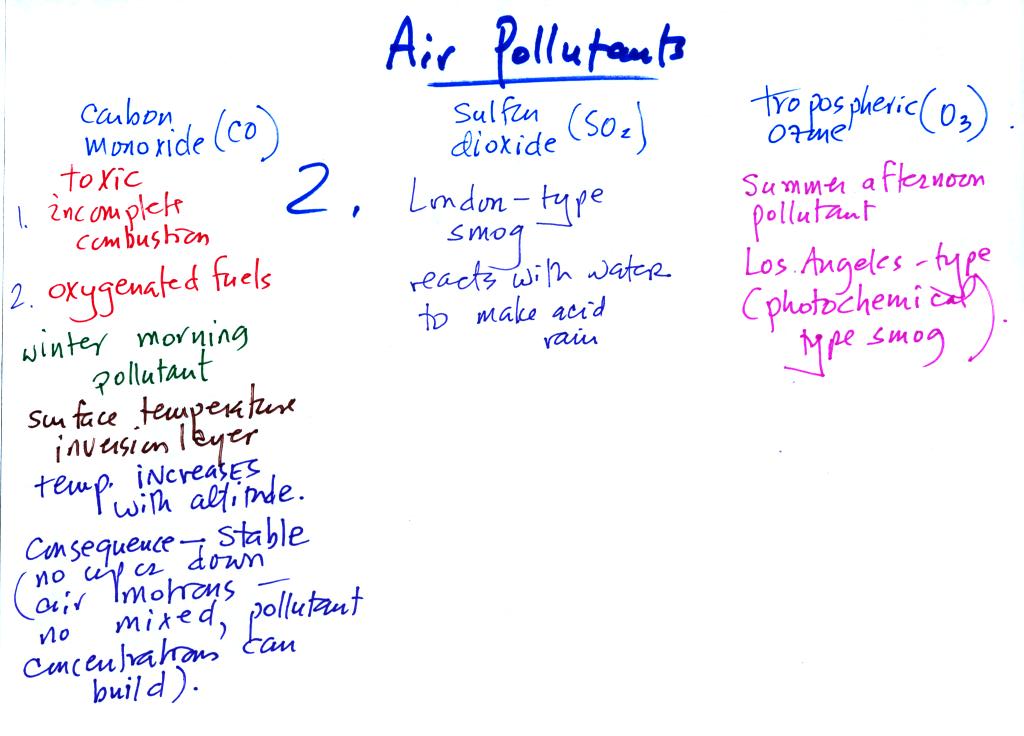 Air Pollutants
carbon
monoxide (CO)
toxic
1. incomplete
combustion
2. oxygenated fuels
winter morning
pollutant
surface temperature
inversion layer
temp. INCREASES
with altitude.
Consequence – stable
(no up or down
air motions –
no mixed, pollutant
concentrations can
build).
2.
Sulfur
dioxide (SO2)
London-type
smog
reacts with water
to make acid
rain
tropospheric (O3).
ozone
summer afternoon
pollutant
Los Angeles - type
(photochemical
type smog).